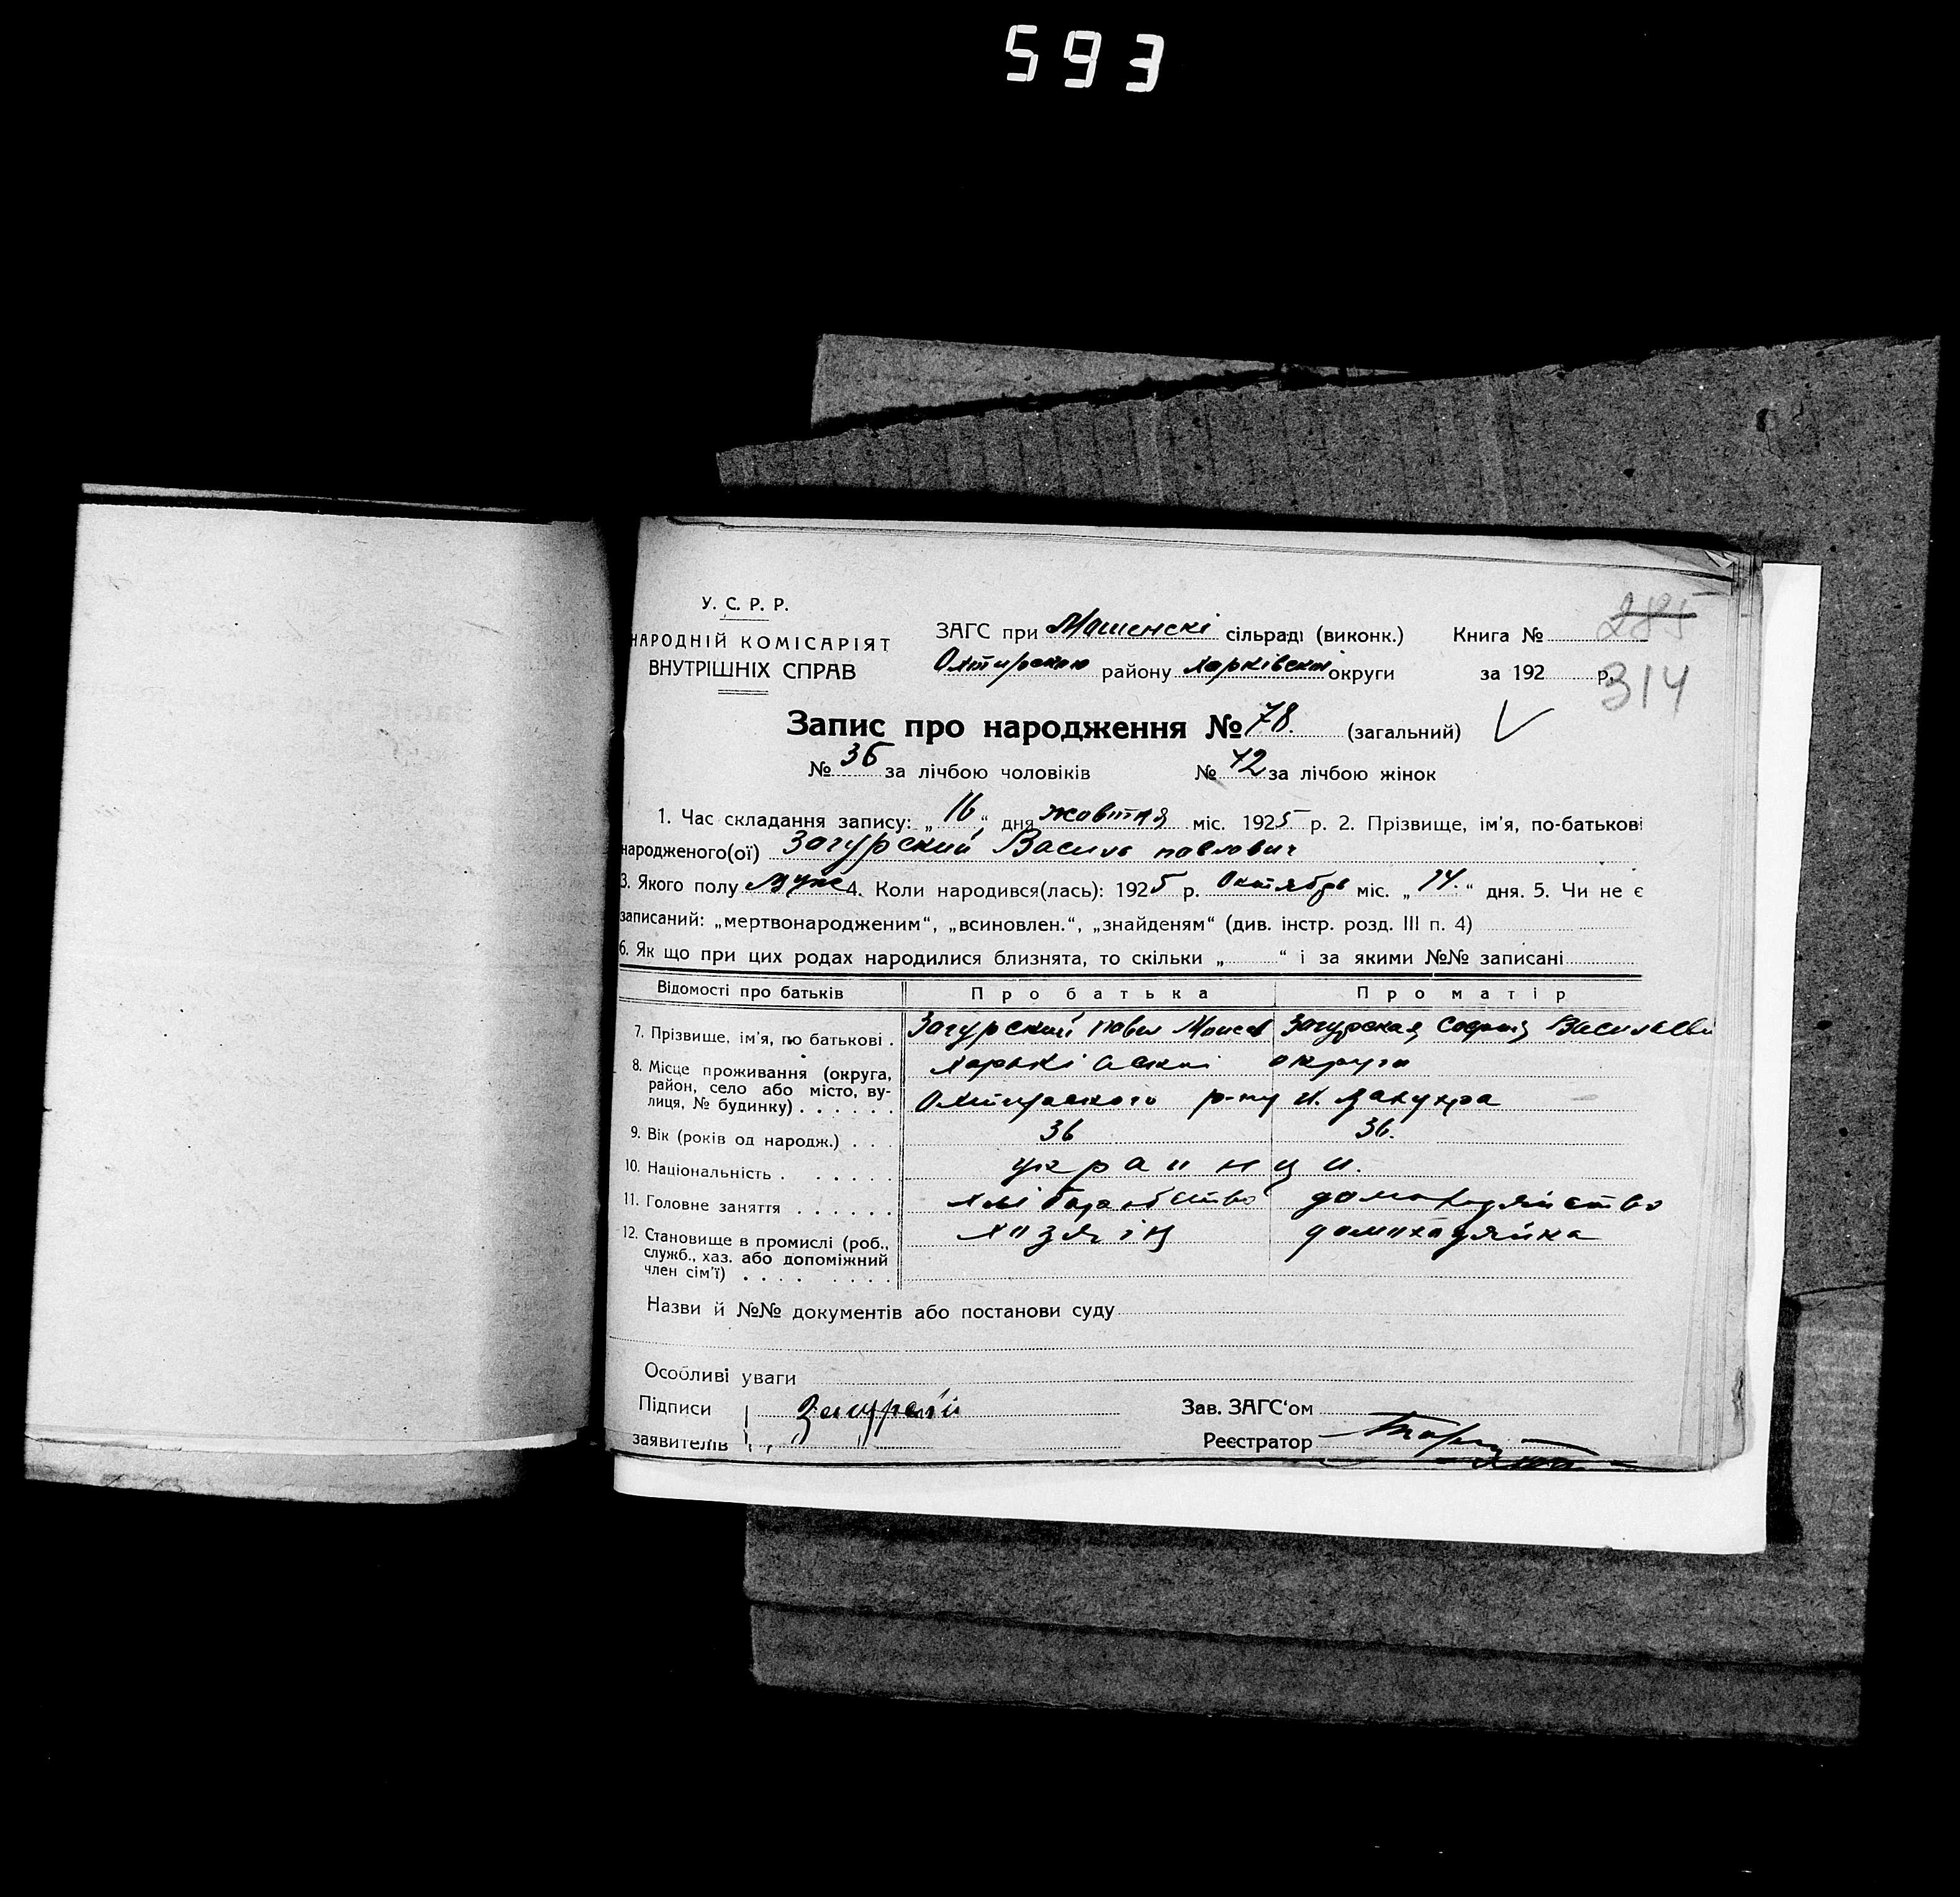 593
285
314
У. С. Р. Р.
НАРОДНІЙ КОМІСАРІЯТ
ВНУТРІШНІХ СПРАВ
ЗАГС при Мошенскі сільраді (виконк.) Книга №
району Харківскої округи за 192 р.
Запис про народження № 78. (загальний)
№ 36 за лічбою чоловіків № 42 за лічбою жінок
1. Час складання запису: „16“ дня жовтня міс. 1925 р. 2. Прізвище, ім'я, по-батькові
народженого(ої) Загурский Василь павлович
3. Якого полу Муж 4. Коли народився(лась): 1925 р. Октября міс. „14.“ дня. 5. Чи не є
записаний: „мертвонародженим“, „всиновлен.“, „знайденям“ (див. інстр. розд. III п. 4)
6. Як що при цих родах народилися близнята, то скільки „ “ і за якими №№ записані
Відомості про батьків Про батька Про матір
7. Прізвище, ім'я, по батькові . Загурский павел Моисев Загурская София Васильевн
8. Місце проживання (округа, округи
район, село або місто, ву-
лиця, № будинку) . . . . . . Охтирского р-ну х.
9. Вік (років од народж.) . . . 36 36.
10. Національність . . . . . . украинци.
11. Головне заняття . . . . . . хліборобство домохозяйство
12. Становище в промислі (роб., хозяін домохозяйка
служб., хаз. або допоміжний
член сім'ї) . . . . . . . .
Назви й №№ документів або постанови суду
Особливі уваги
Підписи Загурский Зав. ЗАГС‘ом
заявителів Реєстратор